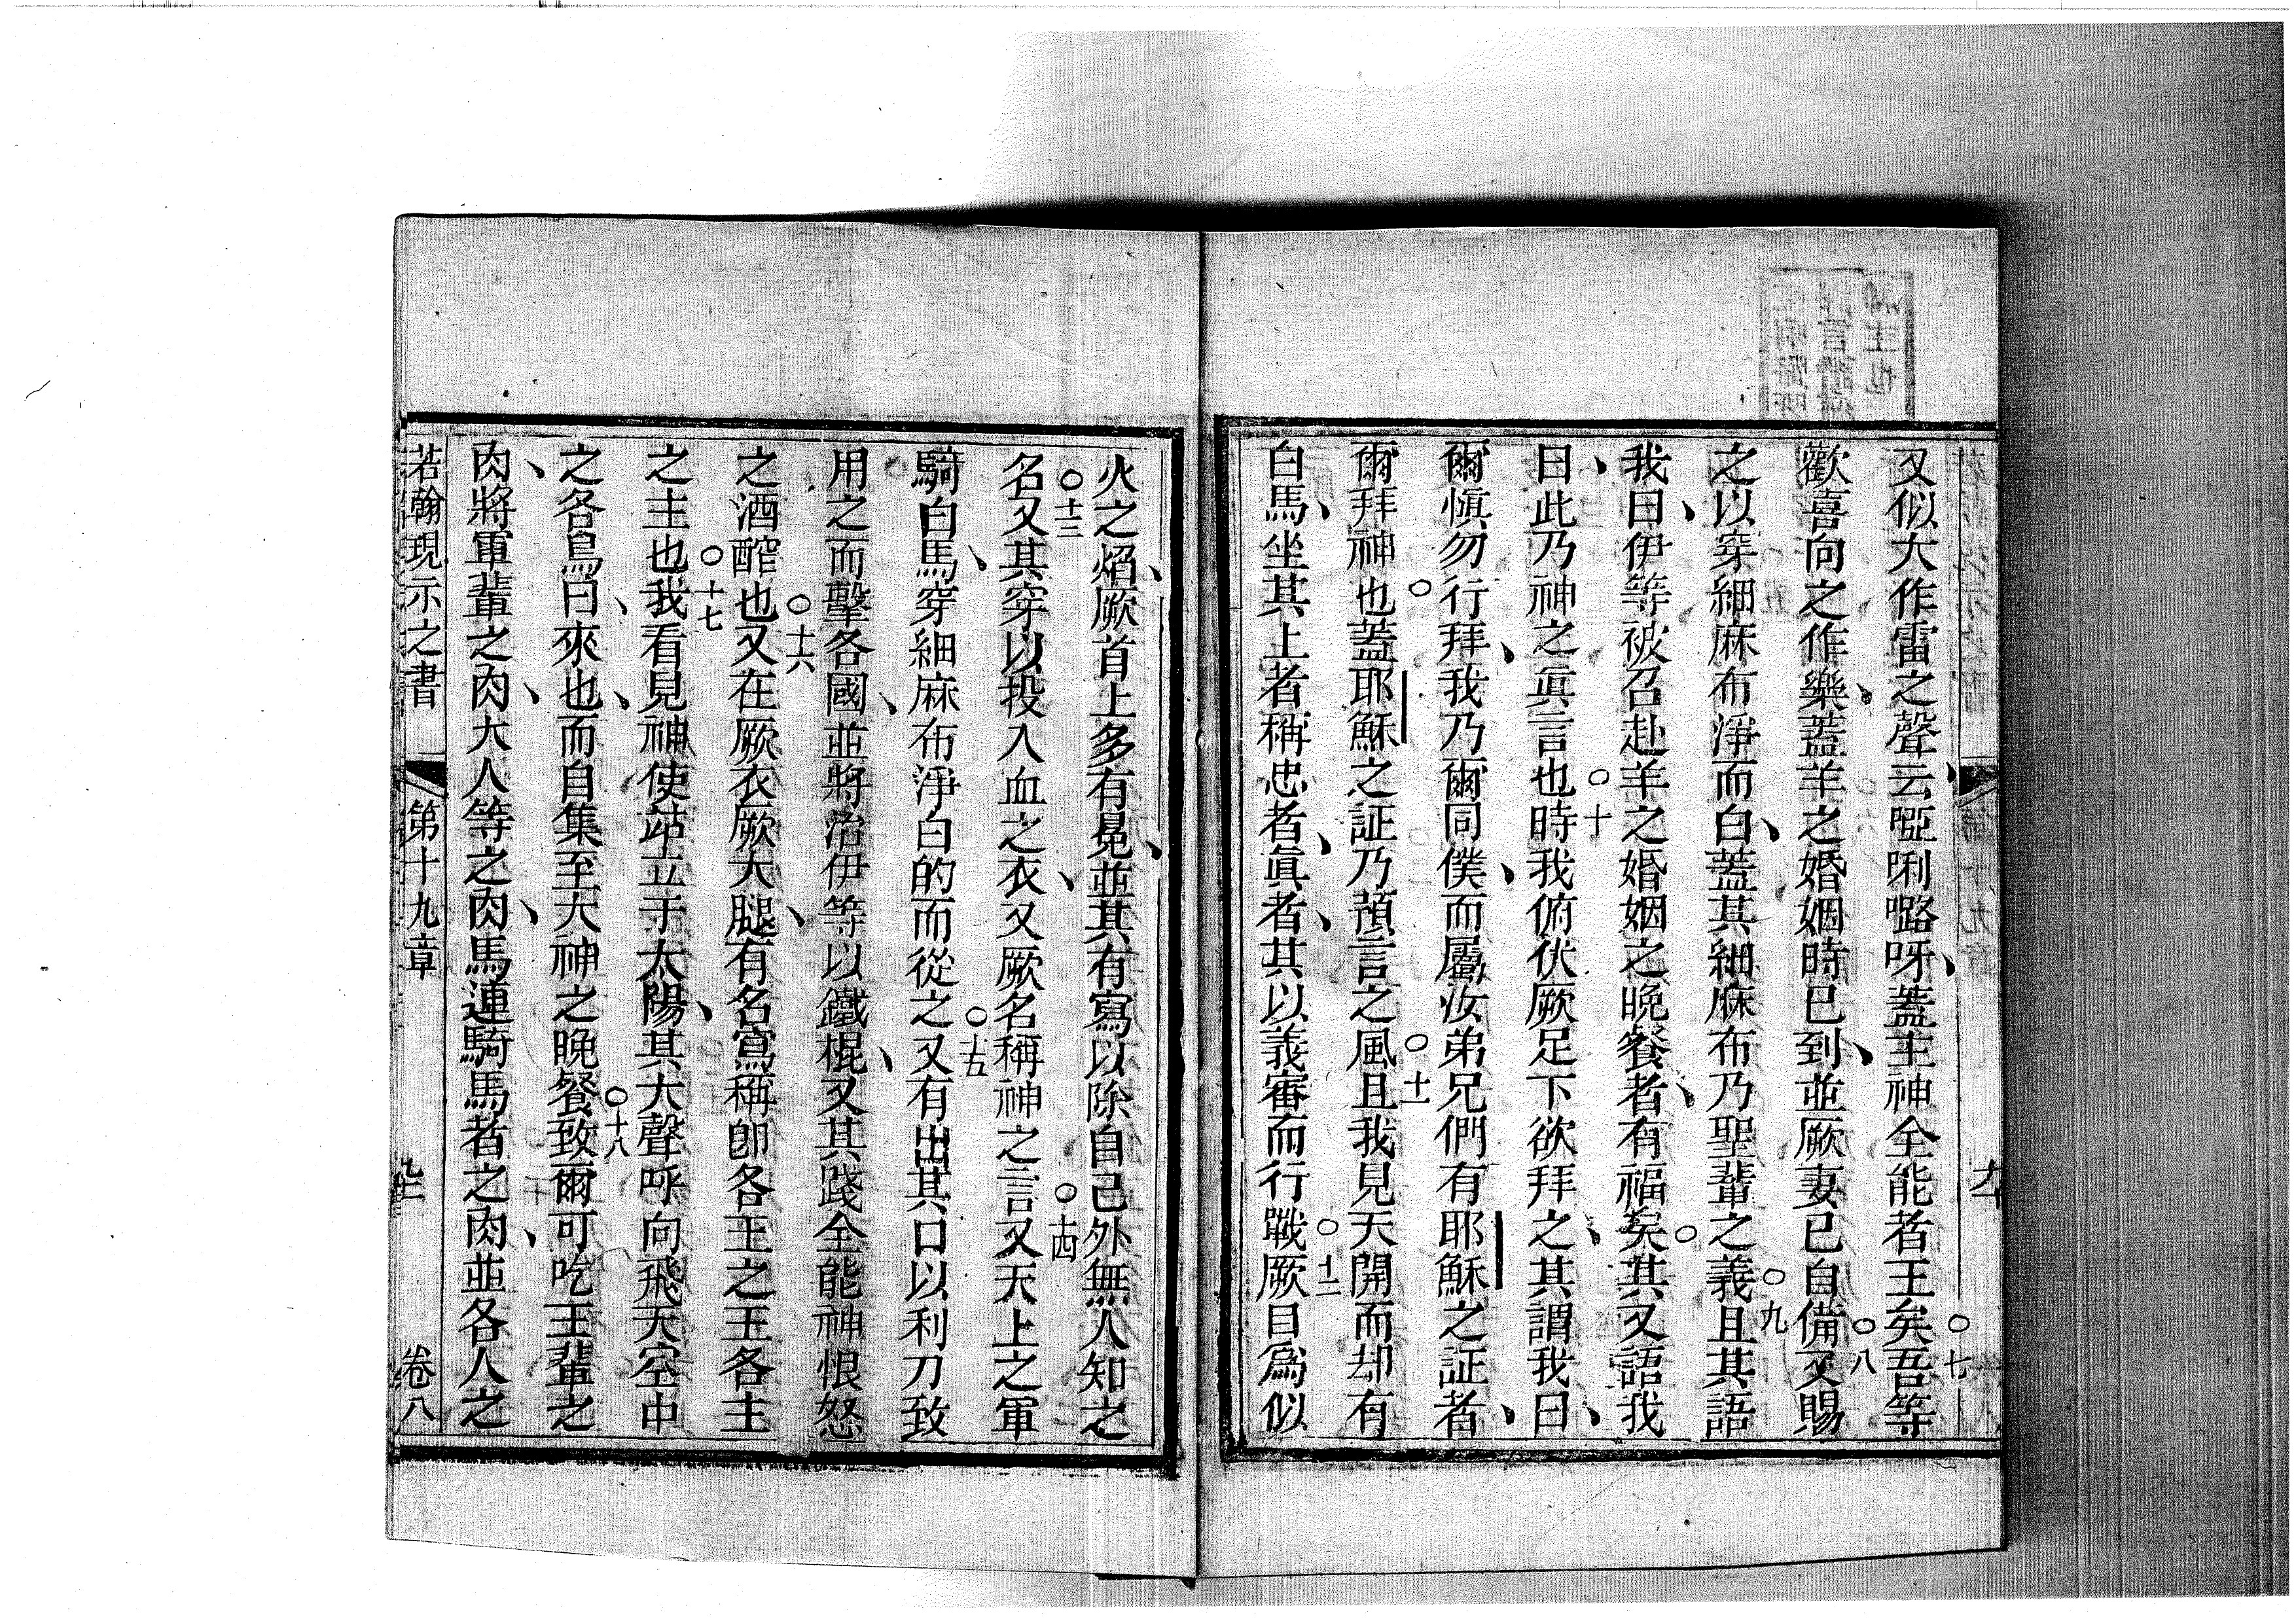 又似大作雷之聲云啞唎嚕呀、蓋主神全能者王矣○七吾等
歡喜向之作樂、蓋羊之婚姻時已到、並厥妻已自備○八又賜
之以穿細麻布淨而白、蓋其細麻布乃聖輩之義○九且其語
我、曰伊等被召赴羊之婚姻之晚餐者、有福矣○其又語我
曰、此乃神之眞言也○十時我俯伏厥足下欲拜之、其謂我曰、
爾愼勿行拜、我乃爾同僕、而屬汝弟兄們有耶穌之証者、
爾拜神也○蓋耶穌之証乃預言之風○十一且我見天開而却有
白馬、坐其上者稱忠者、眞者、其以義審而行戰○十二厥目爲似
火之焰、厥首上多有冕、並其有寫以除自己外無人知之
名○十三又其穿以投入血之衣、又厥名稱神之言○十四又天上之軍
騎白馬、穿細麻布淨白的而從之○十五又有出其口以利刀致
用之而擊各國、並將治伊等以鐵棍、又其踐全能神恨怒
之酒醡也○十六又在厥衣厥大腿、有名寫稱卽各王之王各主
之主也○十七我看見神使站立于太陽、其大聲呼向飛天空中
之各鳥曰、來也、而自集至大神之晚餐○十八致爾可吃王輩之
肉、將軍輩之肉、大人等之肉、馬連騎馬者之肉、並各人之
若翰現示之書 第十九章 卷八